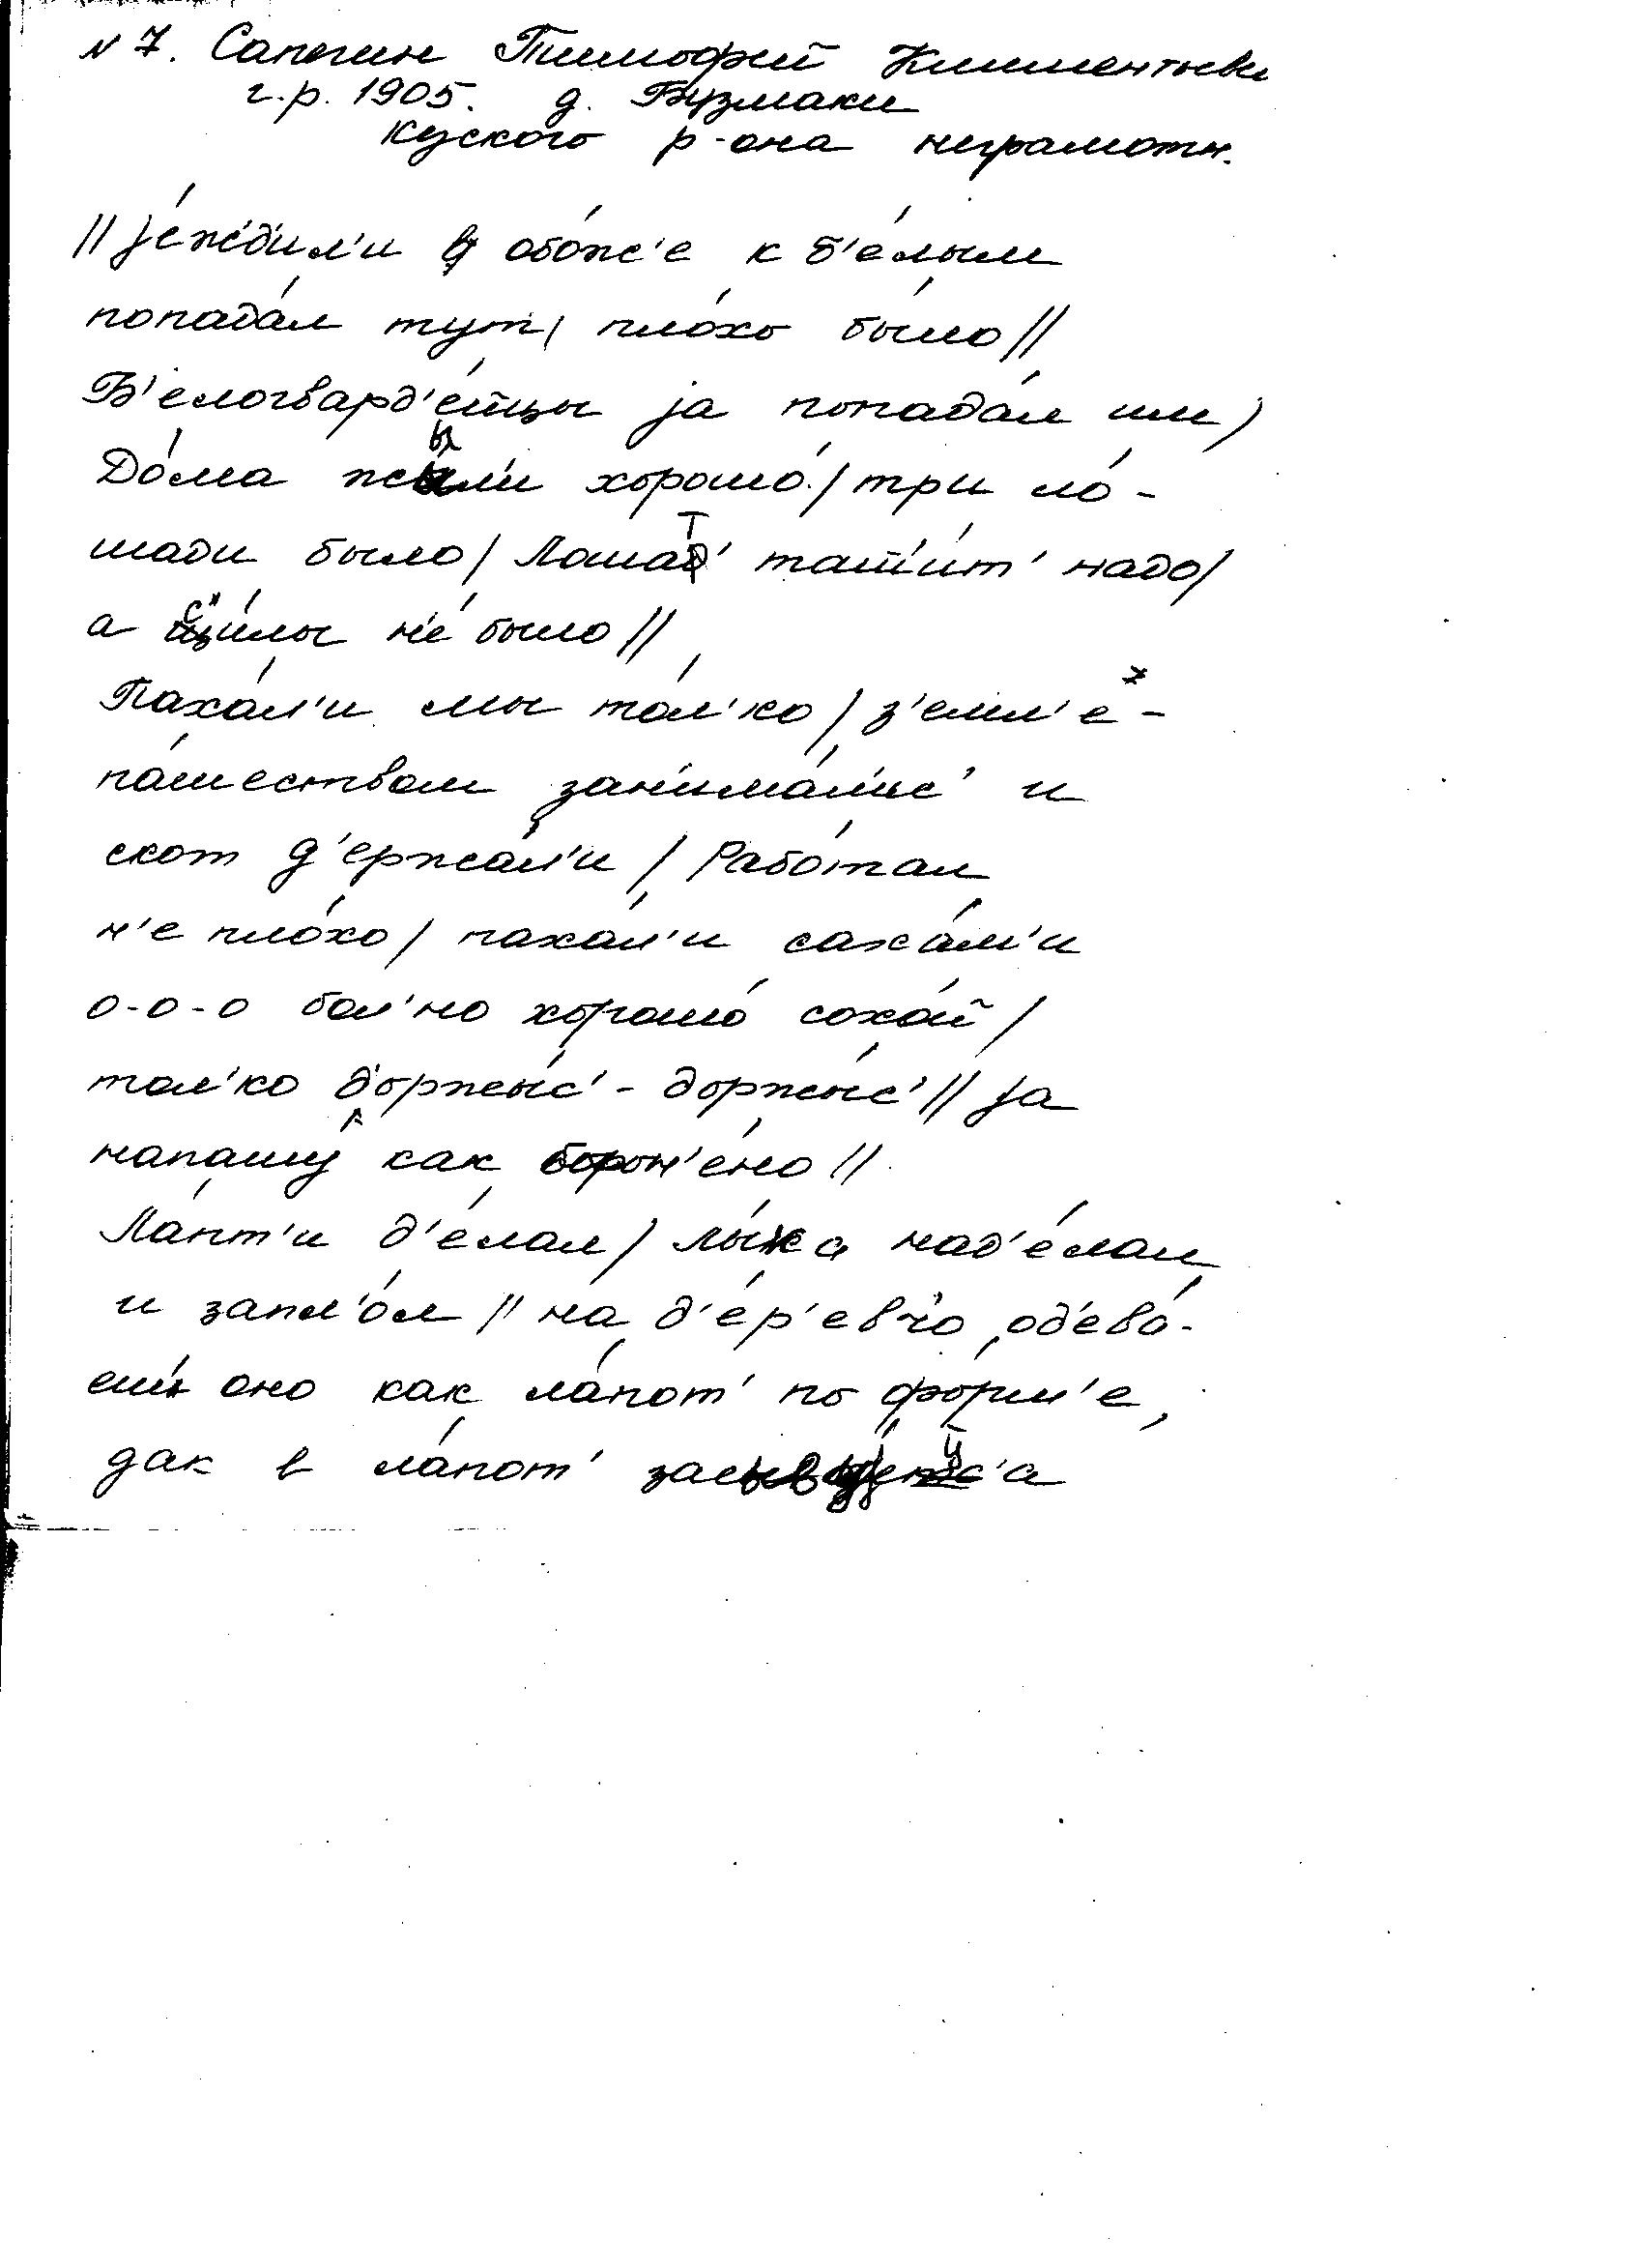 N 7. Сапегин Тимофей Климентьеви
г.р. 1905. д. Бузмаки
Куского р-она неграмотн.
// jе́жд'ил'и в обо́ж'е к б'е́лым
попада́л тут/ пло́хо бы́ло //
Б'елогвард'е́йцы jа попада́л им /
До́ма жы́л'и хорошо́ / три ло́-
шади было / Лошат'таш'и́т' надо /
а с"и́лы н'е́ было //
Паха́л'и мы то́л'ко / з'емл'е-
па́шеством зан'има́л'ис' и
скот д'ержа́л'и / Рабо́тал
н'е пло́хо / паха́л'и сажа́л'и
о-о-о бол'но хорошо́ сохо́й /
тол'ко д'оржы́с' - доржы́с' // jа
напашу́ как борон'е́но //
Ла́пт'и д'е́лал / лы́ка над'е́лаш
и запл'о́л // на д'е́р'евч'о од'ева́-
еш оно как ла́пот' по фо́рм'е,
дак в ла́пот'